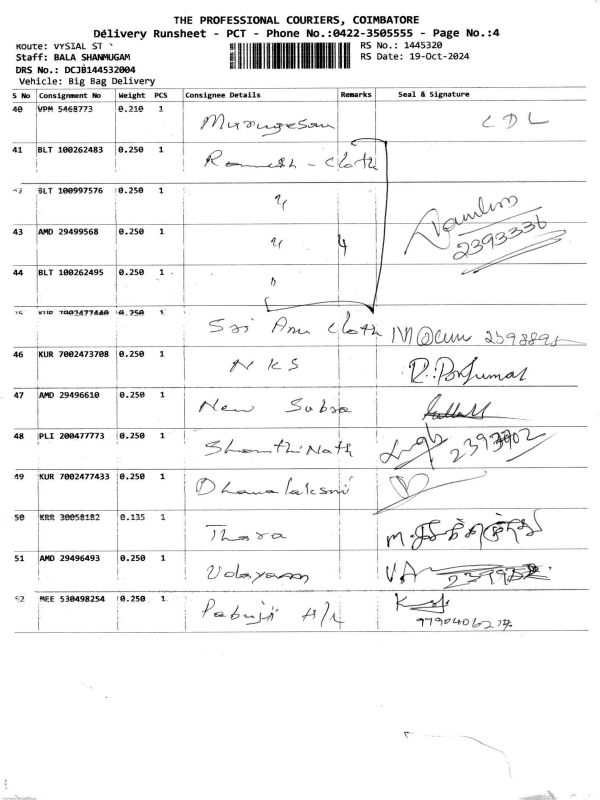 THE PROFESSIONAL COURIERS, COIMBATORE
Delivery Runsheet - PCT - Phone No.:0422-3505555 - Page No.:4
Route: VYSIAL ST
RS No.: 1445320
Staff: BALA SHANMUGAM
RS Date: 19-Oct-2024
DRS No.: DCJB144532004
Vehicle: Big Bag Delivery
S No Consignment No Weight PCS Consignee Details Remarks Seal & Signature
40 VPM 5468773 0.210 1 Murugesan CDL
41 BLT 100262483 0.250 1 Ramesh - Cloth
42 BLT 100997576 0.250 1 "
43 AMD 29499568 0.250 1 " 4 2393336
44 BLT 100262495 0.250 1 "
45 KUR 7002477440 0.250 1 Sri Anu Cloth
46 KUR 7002473708 0.250 1 NKS
47 AMD 29496610 0.250 1 New Subra
48 PLI 200477773 0.250 1 Shanthi Nath
49 KUR 7002477433 0.250 1 Dhanalaksmi
50 KRR 30058182 0.135 1 Thara
51 AMD 29496493 0.250 1 Udayam
52 MEE 530498254 0.250 1 Pabuji H/L